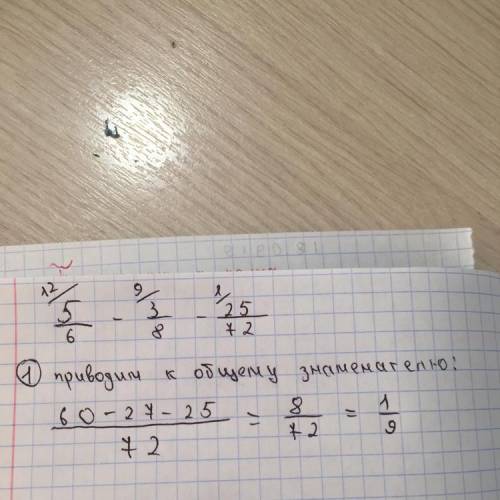 12/ 5/6 - 9/ 3/8 - 1/ 25/72
① приводим к общему знаменателю:
60-27-25/72 = 8/72 = 1/9